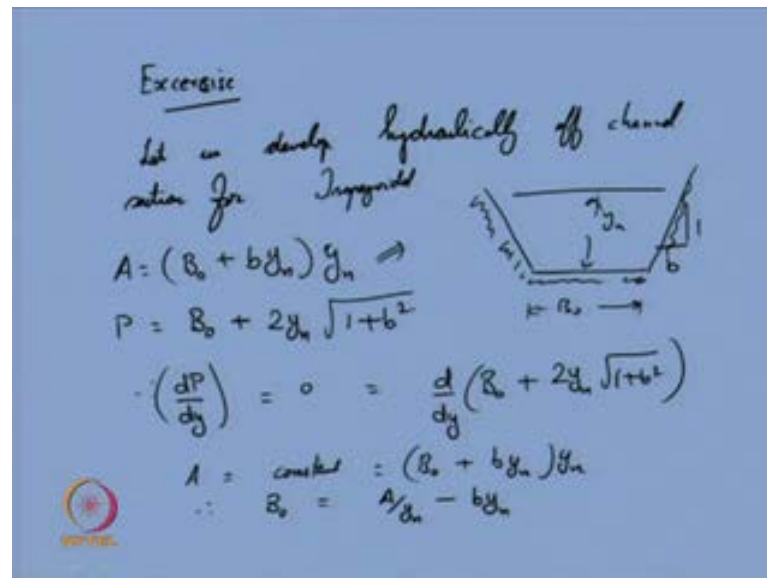 Excercise
Let us develop hydraulically eff channel
section for Trapezoidal
A = (B₀ + byₙ) yₙ ⇒
P = B₀ + 2yₙ √(1+b²)
(dP/dy) = 0 = d/dy (B₀ + 2yₙ √(1+b²))
A = constant = (B₀ + byₙ) yₙ
∴ B₀ = A/yₙ - byₙ
yₙ
1
b
B₀